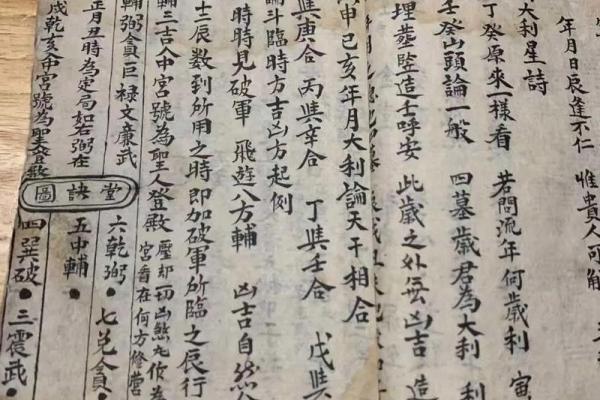 年月日辰逢不仁　惟貴人可解
大利星詩
丁癸原來一樣看　若問流年何歲利　寅
壬癸山頭論一般　四墓歲君為大利　利
埋墓堅造壬呼安　此歲之外無凶吉　造
申巳亥年月大利論天干相合
與庚合　丙與辛合　丁與壬合　戊與
論斗臨時方吉凶方起例
時時見破軍　飛遊八方輔　凶吉自然
十二辰數到所用之時即加破軍所臨之辰行
輔三吉入中宮號為聖人登殿　壓却一切凶煞
宮看在何方修營
輔弼貪巨祿文廉武
正月丑時為定局如右弼在
戌乾亥中宮號為聖登殿
堂訣圖
六乾弼・七兌貪・
五中輔・
四巽破・三震武・